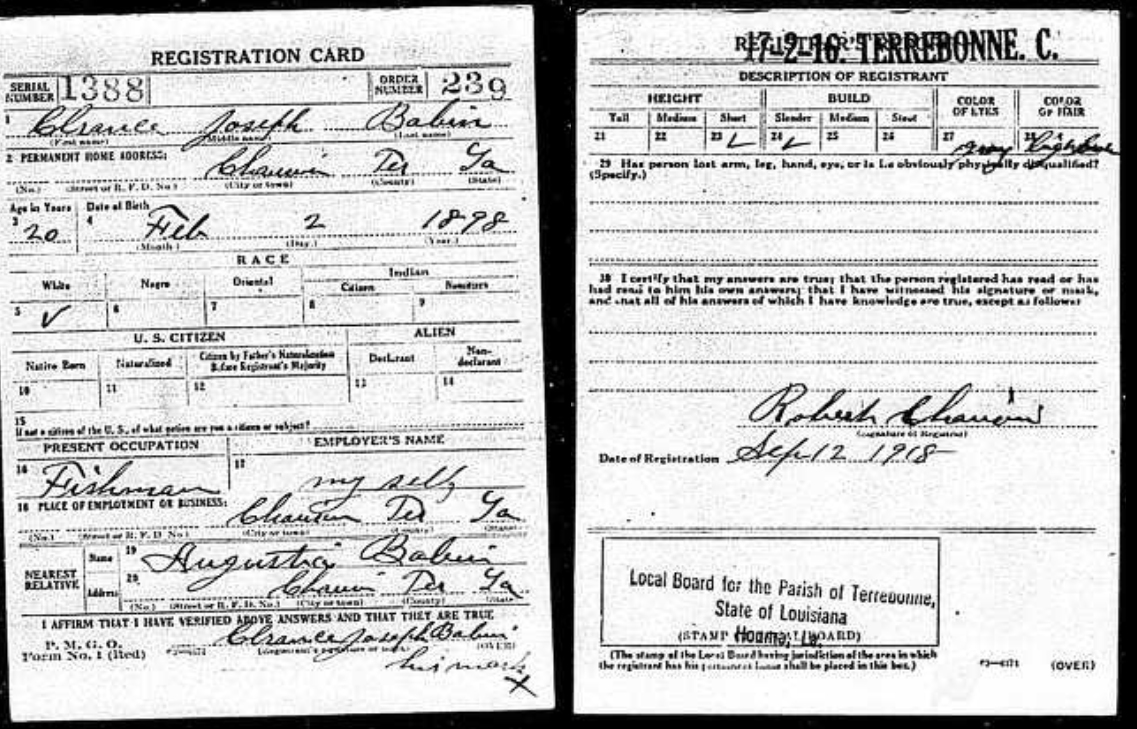 REGISTRATION CARD
SERIAL NUMBER 1388 ORDER NUMBER 239
1 Clrance Joseph Babin
(First name) (Middle name) (Last name)
2 PERMANENT HOME ADDRESS:
Chauvin Ter La
(No.) (Street or R. F. D. No.) (City or town) (County) (State)
Age in Years Date of Birth
3 20 4 Feb 2 1898
(Month.) (Day.) (Year.)
RACE
White Negro Oriental Indian
Citizen Noncitizen
5 ✓ 6 7 8 9
U. S. CITIZEN ALIEN
Native Born Naturalized Citizen by Father's Naturalization Before Registrant's Majority Declarant Non-declarant
10 11 12 13 14
15
If not a citizen of the U. S., of what nation are you a citizen or subject?
PRESENT OCCUPATION EMPLOYER'S NAME
16 Fishman 17 my self
18 PLACE OF EMPLOYMENT OR BUSINESS:
Chauvin Ter La
(No.) (Street or R. F. D. No.) (City or town) (County) (State)
NEAREST RELATIVE Name 19 Augustin Babin
Address 20 Chauvin Ter La
(No.) (Street or R. F. D. No.) (City or town) (County) (State)
I AFFIRM THAT I HAVE VERIFIED ABOVE ANSWERS AND THAT THEY ARE TRUE
P. M. G. O.
Form No. 1 (Red) Clrance Joseph Babin
(Registrant's signature or mark) (OVER)
his mark
X
REGISTRAR'S REPORT
17-2-16. TERREBONNE. C.
DESCRIPTION OF REGISTRANT
HEIGHT BUILD COLOR OF EYES COLOR OF HAIR
Tall Medium Short Slender Medium Stout
21 22 23 ✓ 24 ✓ 25 26 27 gray 28
29 Has person lost arm, leg, hand, eye, or is he obviously physically disqualified?
(Specify.)
30 I certify that my answers are true; that the person registered has read or has
had read to him his own answers; that I have witnessed his signature or mark,
and that all of his answers of which I have knowledge are true, except as follows:
Robert Chauvin
(Signature of Registrar)
Date of Registration Sep 12 1918
Local Board for the Parish of Terrebonne,
State of Louisiana
Houma, La.
(STAMP OF LOCAL BOARD)
(The stamp of the Local Board having jurisdiction of the area in which
the registrant has his permanent home shall be placed in this box.)
(OVER)